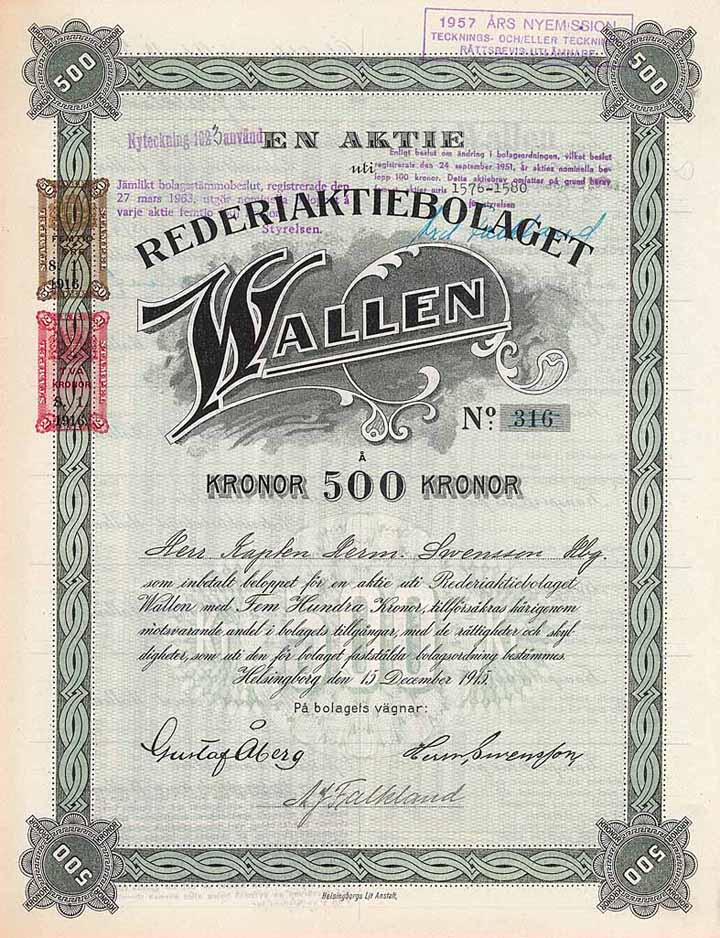 1957 ÅRS NYEMISSION
TECKNINGS- OCH/ELLER TECKNINGS
RÄTTSBEVIS UTLÄMNADE
500
500
Nyteckning 1923 använd
EN AKTIE
uti
Enligt beslut om ändring i bolagsordningen, vilket beslut
registrerats den 24 september 1951, är akties nominella be-
lopp 100 kronor. Detta aktiebrev omfattar på grund härav
aktier 1576-1580
Styrelsen
Jämlikt bolagsstämmobeslut, registrerade den
27 mars 1963, utgör
varje aktie femtio
Styrelsen.
REDERIAKTIEBOLAGET
WALLEN
STÄMPEL
FEMTIO
8. 1
1916
STÄMPEL
TVÅ
KRONOR
8. 1.
1916
No. 316
À
KRONOR 500 KRONOR
Herr Kapten Herm. Swensson Hbg.
som inbetalt beloppet för en aktie uti Rederiaktiebolaget
Wallen med Fem Hundra Kronor, tillförsäkras härigenom
motsvarande andel i bolagets tillgångar, med de rättigheter och skyl-
digheter, som uti den för bolaget fastställda bolagsordning bestämmes.
Helsingborg den 15 December 1915.
På bolagets vägnar:
Gustaf Åberg
Herm. Swensson
A J Falkland
500
500
Helsingborgs Lit Anstalt,